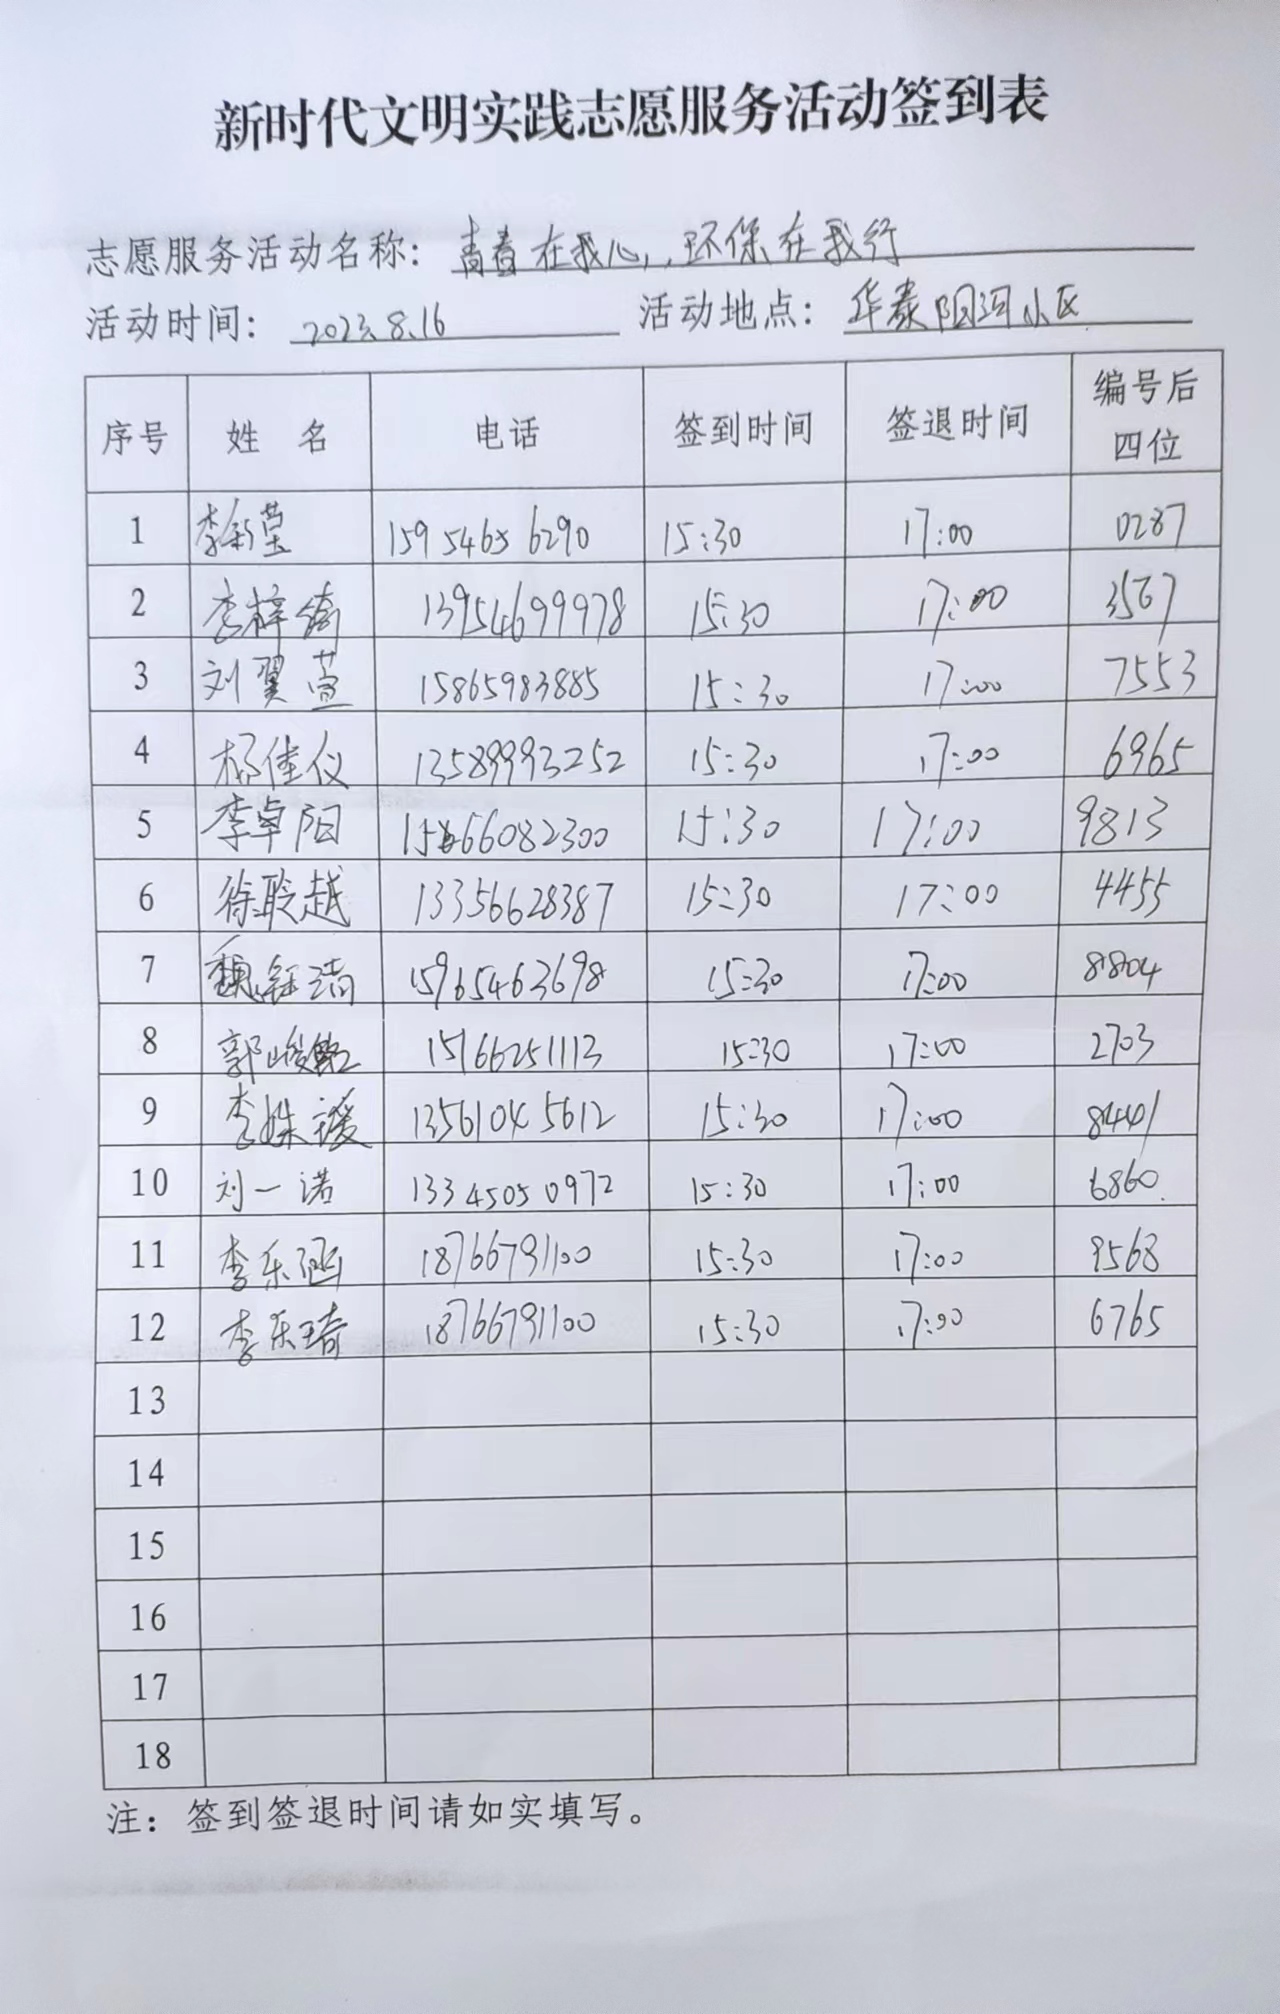 新时代文明实践志愿服务活动签到表
志愿服务活动名称：青春在我心，环保在我行
活动时间：2023.8.16 活动地点：华泰阳河小区
序号 姓名 电话 签到时间 签退时间 编号后四位
1 李新莹 15954656290 15:30 17:00 0287
2 李梓绮 13954699978 15:30 17:00 3567
3 刘翼萱 15865983885 15:30 17:00 7553
4 杨佳仪 13589993252 15:30 17:00 6965
5 李卓阳 15866082300 15:30 17:00 9813
6 徐聆越 13356628387 15:30 17:00 4455
7 魏钰洁 15965463698 15:30 17:00 8804
8 郭峻 15166251113 15:30 17:00 2703
9 李姝谖 13561045612 15:30 17:00 8441
10 刘一诺 13345050972 15:30 17:00 6860
11 李乐涵 18766791100 15:30 17:00 9568
12 李乐琦 18766791100 15:30 17:00 6765
13
14
15
16
17
18
注：签到签退时间请如实填写。